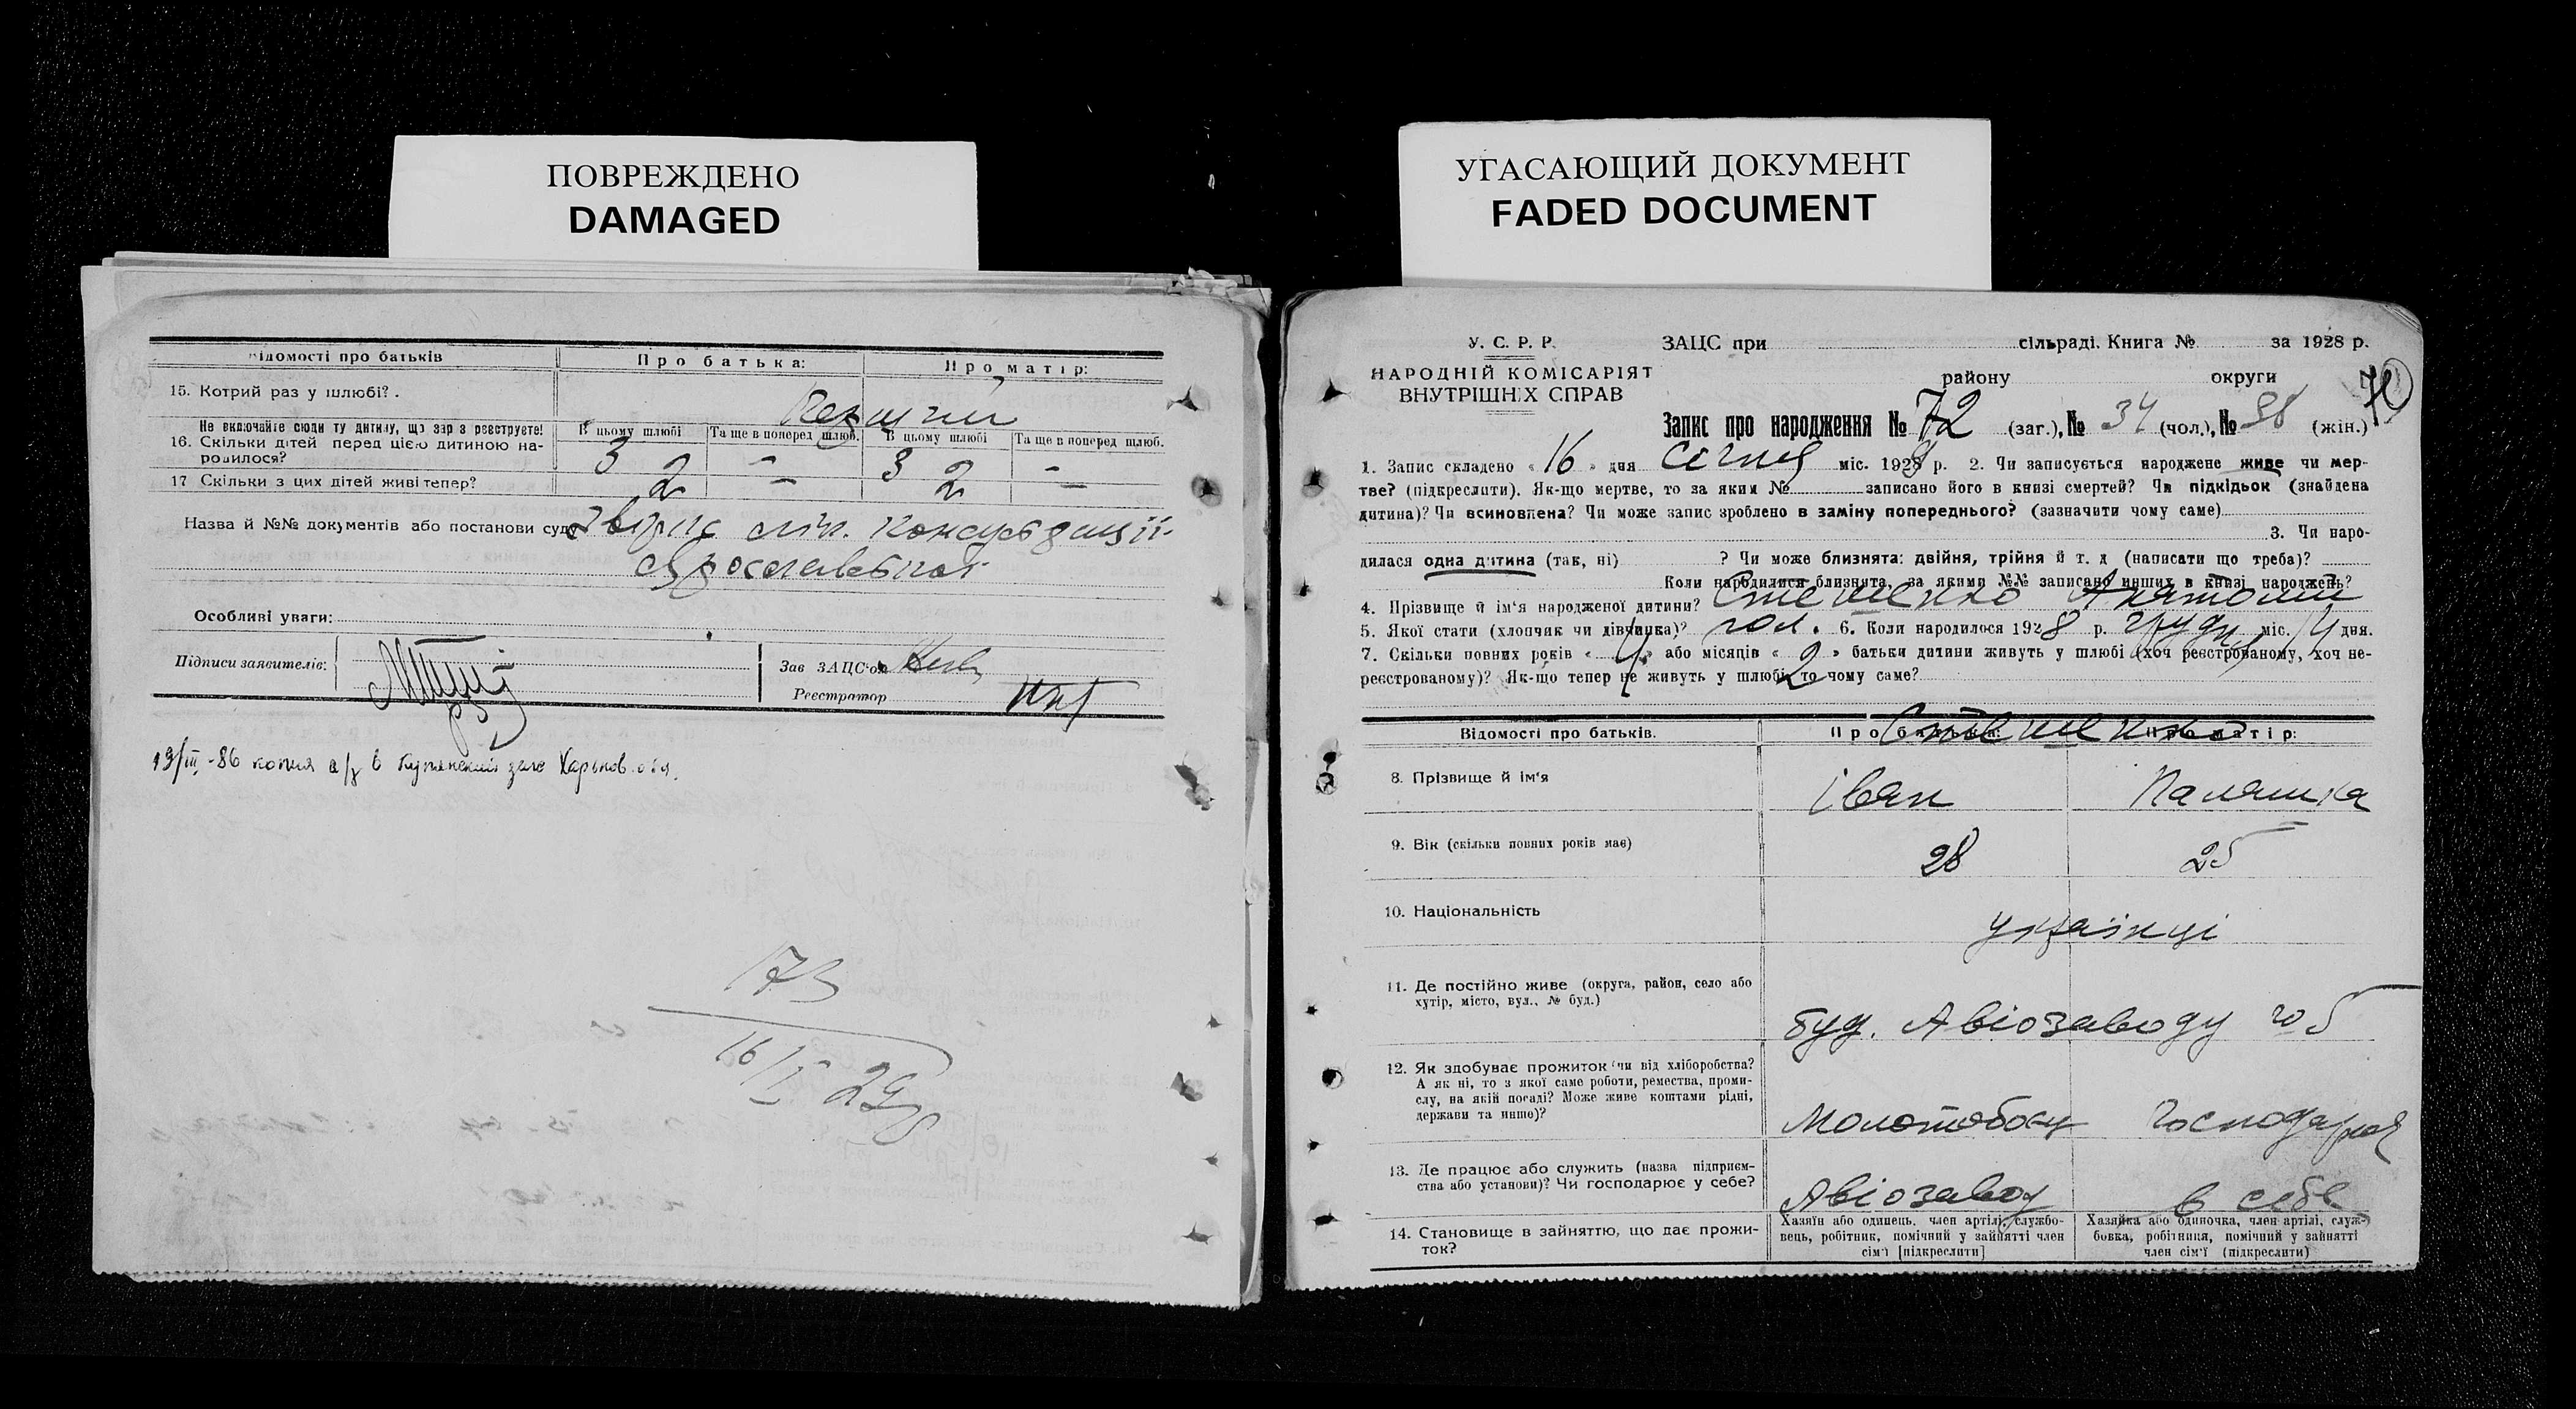 ПОВРЕЖДЕНО
DAMAGED
відомості про батьків
Про батька:
Про матір:
15. Котрий раз у шлюбі?.
Не включайте сюди ту дитину, що зараз реєструєте!
В цьому шлюбі
Та ще в поперед. шлюб.
В цьому шлюбі
Та ще в поперед шлюб.
16. Скільки дітей перед цією дитиною на-
родилося?
3 2 - 3 2 -
17 Скільки з цих дітей живі тепер?
2 - 2 -
Назва й №№ документів або постанови суду
Особливі уваги:
Підписи заявителів:
Зав ЗАЦС'ом
Реєстратор
19/III-86 копия а/з в Купянский загс Харьков. обл.
173
16/I 29
УГАСАЮЩИЙ ДОКУМЕНТ
FADED DOCUMENT
У. С. Р. Р.
ЗАЦС при сільраді. Книга № за 1928 р.
НАРОДНІЙ КОМІСАРІЯТ
ВНУТРІШНІХ СПРАВ
району округи
Запис про народження № 72 (заг.), № 34 (чол.), № 38 (жін.)
1. Запис складено « 16 » дня січня міс. 192 р. 2. Чи записується народжене живе чи мер-
тве? (підкреслити). Як-що мертве, то за яким № записано його в книзі смертей? Чи підкідьок (знайдена
дитина)? Чи всиновлена? Чи може запис зроблено в заміну попереднього? (зазначити чому саме)
3. Чи наро-
дилася одна дитина (так, ні) ? Чи може близнята: двійня, трійня й т. д (написати що треба)?
Коли народилися близнята, за якими №№ записано инших в книзі народжень?
4. Прізвище й ім'я народженої дитини? Стешенко Анатолій
5. Якої стати (хлопчик чи дівчинка)? чол. 6. Коли народилося 1928 р. грудн міс. 14 дня.
7. Скільки повних років « 4 » або місяців « 2 » батьки дитини живуть у шлюбі (хоч реєстрованому, хоч не-
реєстрованому)? Як-що тепер не живуть у шлюбі, то чому саме?
Відомості про батьків.
Про батька:
Про матір:
Стешенко
8. Прізвище й ім'я
Іван
Палашка
9. Вік (скільки повних років має)
28
25
10. Національність
українці
11. Де постійно живе (округа, район, село або
хутір, місто, вул., № буд.)
буд. Авіозаводу 5
12. Як здобуває прожиток чи від хліборобства?
А як ні, то з якої саме роботи, ремества, проми-
слу, на якій посаді? Може живе коштами рідні,
держави та инше)?
Молотобоєц
Господарка
13. Де працює або служить (назва підприєм-
ства або установи)? Чи господарює у себе?
Авіозавод
в себе
14. Становище в зайняттю, що дає прожи-
ток?
Хазяїн або одинець, член артілі, службо-
вець, робітник, помічний у зайнятті член
сім'ї [підкреслити]
Хазяйка або одиночка, член артілі, служ-
бовка, робітниця, помічний у зайнятті
член сім'ї (підкреслити)